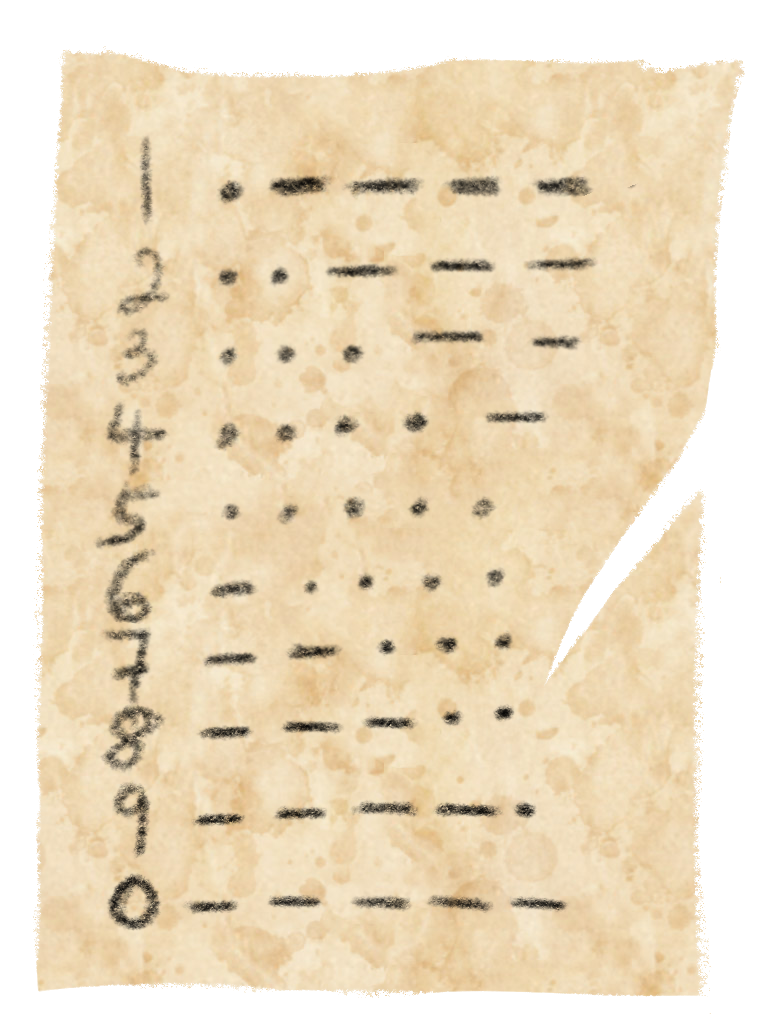 1 . - - - -
2 . . - - -
3 . . . - -
4 . . . . -
5 . . . . .
6 - . . . .
7 - - . . .
8 - - - . .
9 - - - - .
0 - - - - -